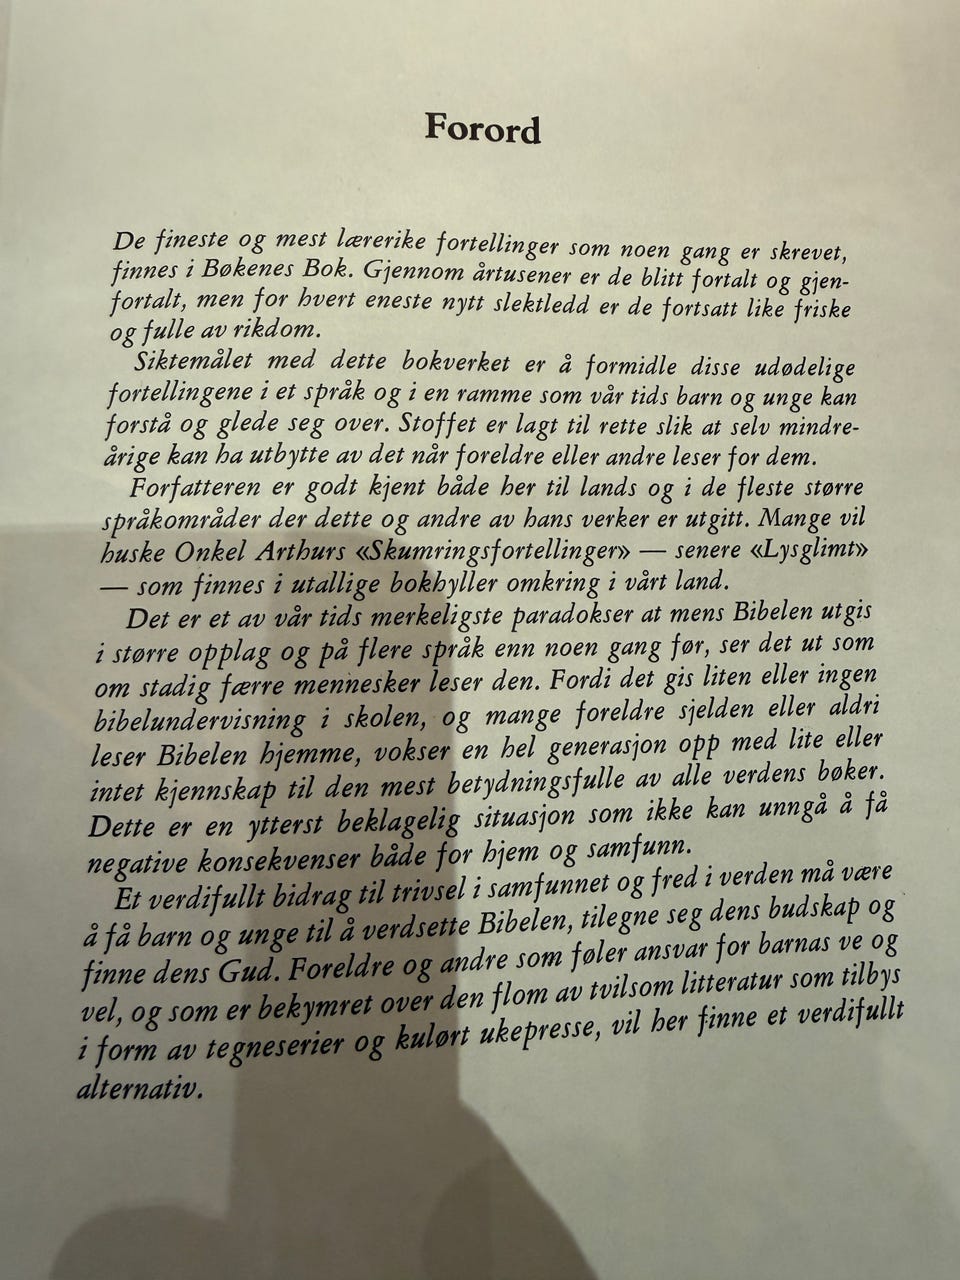 Forord
De fineste og mest lærerike fortellinger som noen gang er skrevet,
finnes i Bøkenes Bok. Gjennom årtusener er de blitt fortalt og gjen-
fortalt, men for hvert eneste nytt slektledd er de fortsatt like friske
og fulle av rikdom.
Siktemålet med dette bokverket er å formidle disse udødelige
fortellingene i et språk og i en ramme som vår tids barn og unge kan
forstå og glede seg over. Stoffet er lagt til rette slik at selv mindre-
årige kan ha utbytte av det når foreldre eller andre leser for dem.
Forfatteren er godt kjent både her til lands og i de fleste større
språkområder der dette og andre av hans verker er utgitt. Mange vil
huske Onkel Arthurs «Skumringsfortellinger» — senere «Lysglimt»
— som finnes i utallige bokhyller omkring i vårt land.
Det er et av vår tids merkeligste paradokser at mens Bibelen utgis
i større opplag og på flere språk enn noen gang før, ser det ut som
om stadig færre mennesker leser den. Fordi det gis liten eller ingen
bibelundervisning i skolen, og mange foreldre sjelden eller aldri
leser Bibelen hjemme, vokser en hel generasjon opp med lite eller
intet kjennskap til den mest betydningsfulle av alle verdens bøker.
Dette er en ytterst beklagelig situasjon som ikke kan unngå å få
negative konsekvenser både for hjem og samfunn.
Et verdifullt bidrag til trivsel i samfunnet og fred i verden må være
å få barn og unge til å verdsette Bibelen, tilegne seg dens budskap og
finne dens Gud. Foreldre og andre som føler ansvar for barnas ve og
vel, og som er bekymret over den flom av tvilsom litteratur som tilbys
i form av tegneserier og kulørt ukepresse, vil her finne et verdifullt
alternativ.